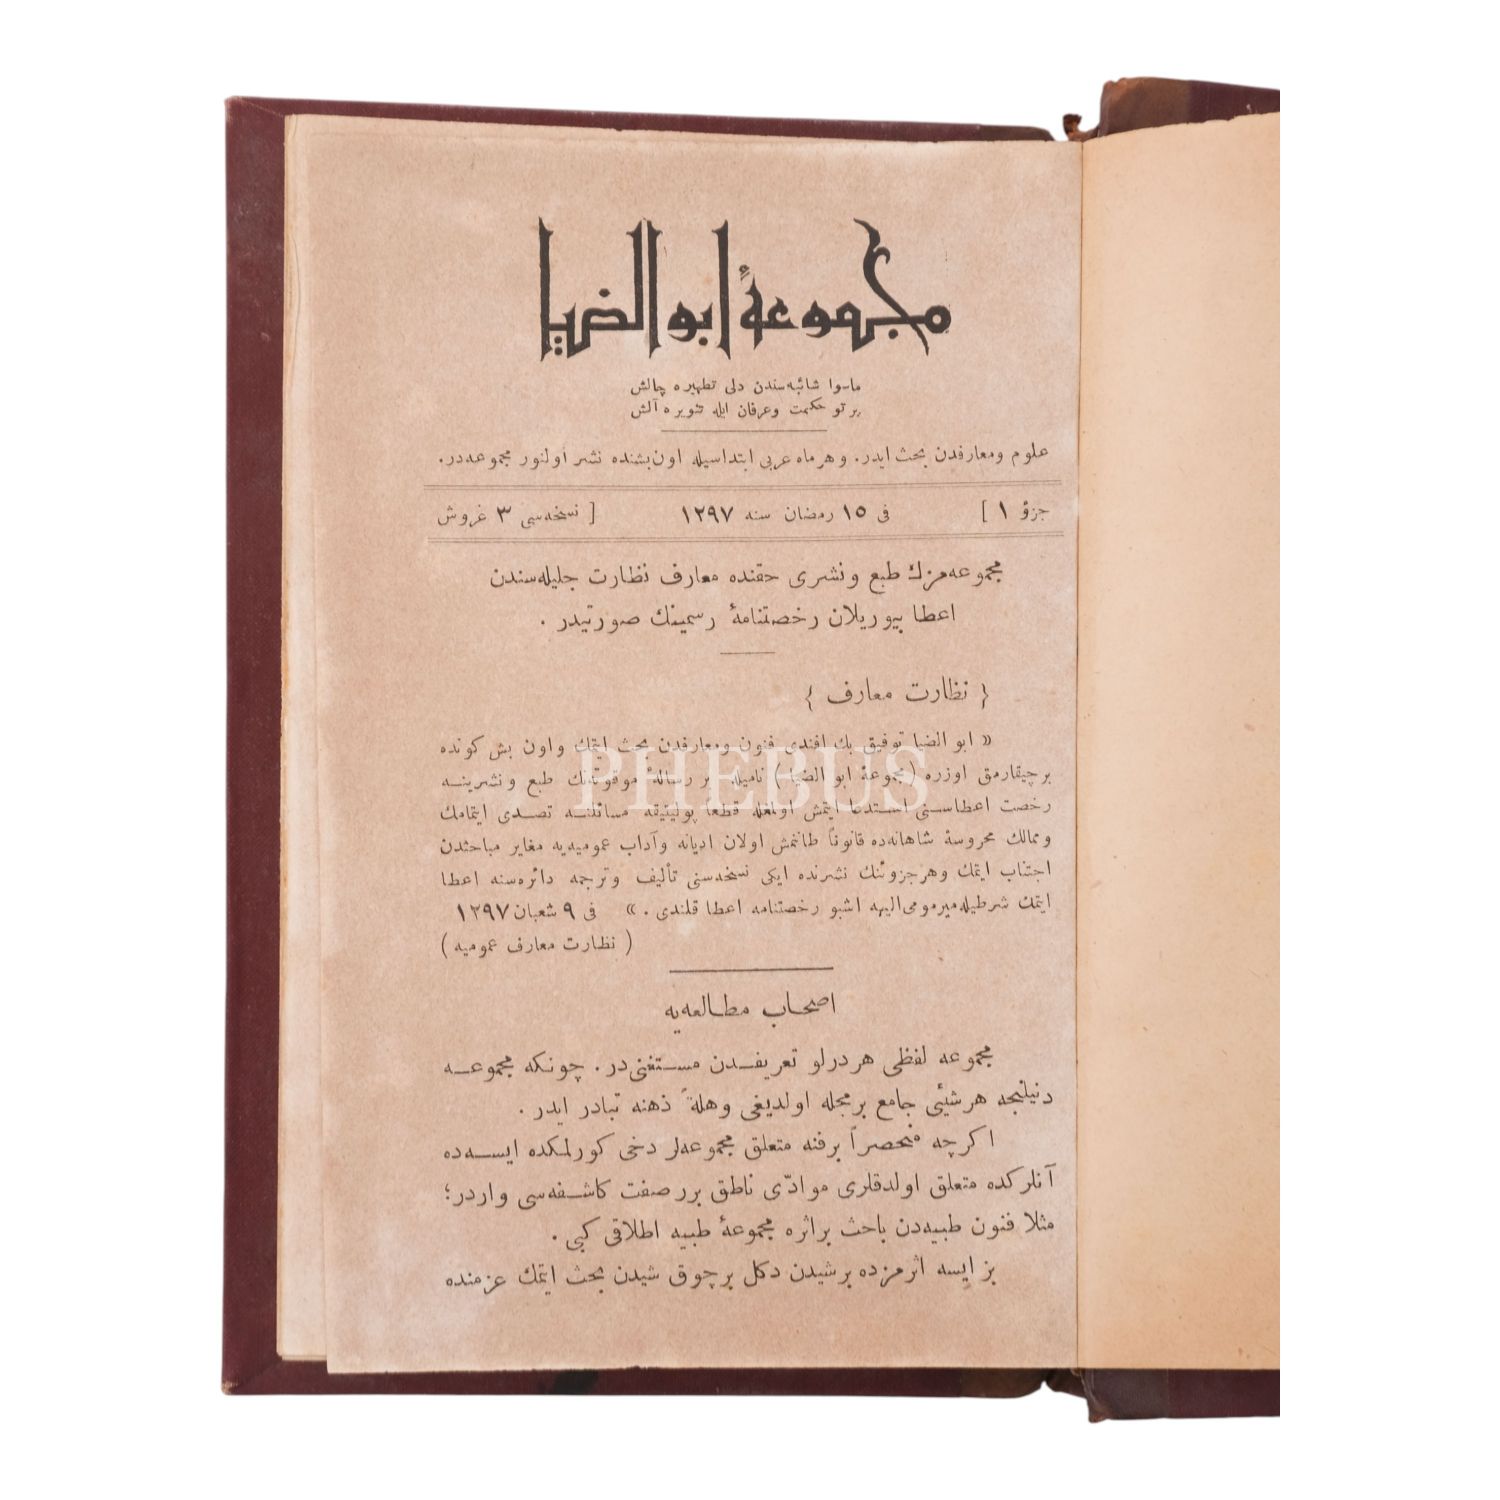 مجموعهٔ ابوالضیا
ماسوا شائبه‌سندن دلی تطهیره چالش
پرتو حکمت وعرفان ایله تنویره آلش
علوم ومعارفدن بحث ایدر. وهرماه عربی ابتداسیله اون‌بشنده نشر اولنور مجموعه‌در.
جزؤ ١ ] فی ١٥ رمضان سنه ١٢٩٧ [ نسخه‌سی ٣ غروش
مجموعه‌مزك طبع ونشری حقنده معارف نظارت جلیله‌سندن
اعطا بیوریلان رخصتنامهٔ رسمینك صورتیدر .
{ نظارت معارف }
« ابو الضیا توفیق بك افندی فنون ومعارفدن بحث ایتمك واون بش کونده
برچیقارمق اوزره (مجموعهٔ ابو الضیا) نامیله بر رسالهٔ موقوته‌نك طبع ونشرینه
رخصت اعطاسنی استدعا ایتمش اولمغله قطعا پولیتیقه مسائلنه تصدی ایتمامك
وممالك محروسهٔ شاهانه‌ده قانوناً طانمش اولان ادیانه وآداب عمومیه‌یه مغایر مباحثدن
اجتناب ایتمك وهرجزوئنك نشرنده ایکی نسخه‌سنی تألیف وترجمه دائره‌سنه اعطا
ایتمك شرطیله میرمومی‌الیهه اشبو رخصتنامه اعطا قلندی . » فی ٩ شعبان ١٢٩٧
( نظارت معارف عمومیه )
اصحاب مطالعه‌یه
مجموعه لفظی هردرلو تعریفدن مستغنی‌در . چونکه مجموعه
دنیلنجه هرشیئی جامع برمجله اولدیغی وهلةً ذهنه تبادر ایدر .
اکرچه منحصراً برفنه متعلق مجموعه‌لر دخی کورلمکده ایسه‌ده
آنلرکده متعلق اولدقلری موادّی ناطق بررصفت کاشفه‌سی واردر؛
مثلا فنون طبیه‌دن باحث براثره مجموعهٔ طبیه اطلاقی کبی .
بز ایسه اثرمزده برشیدن دکل برچوق شیدن بحث ایتمك عزمنده
PHEBUS